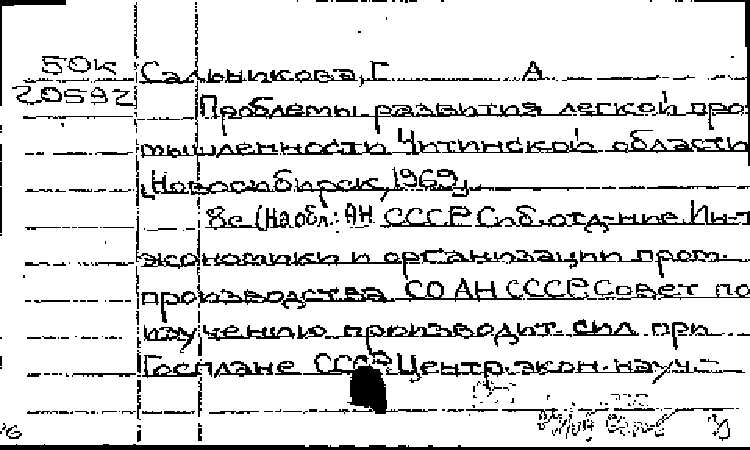 50К Сальникова, Г А
20592 Проблемы развития легкой про
мышленности Читинской области
[Новосибирск, 1969]
8с (На обл.: АН СССР. Сиб. отд-ние. Ин-т
экономики и организации пром.
производства СО АН СССР. Совет по
изучению производит. сил при
Госплане СССР. Центр. экон. науч.-